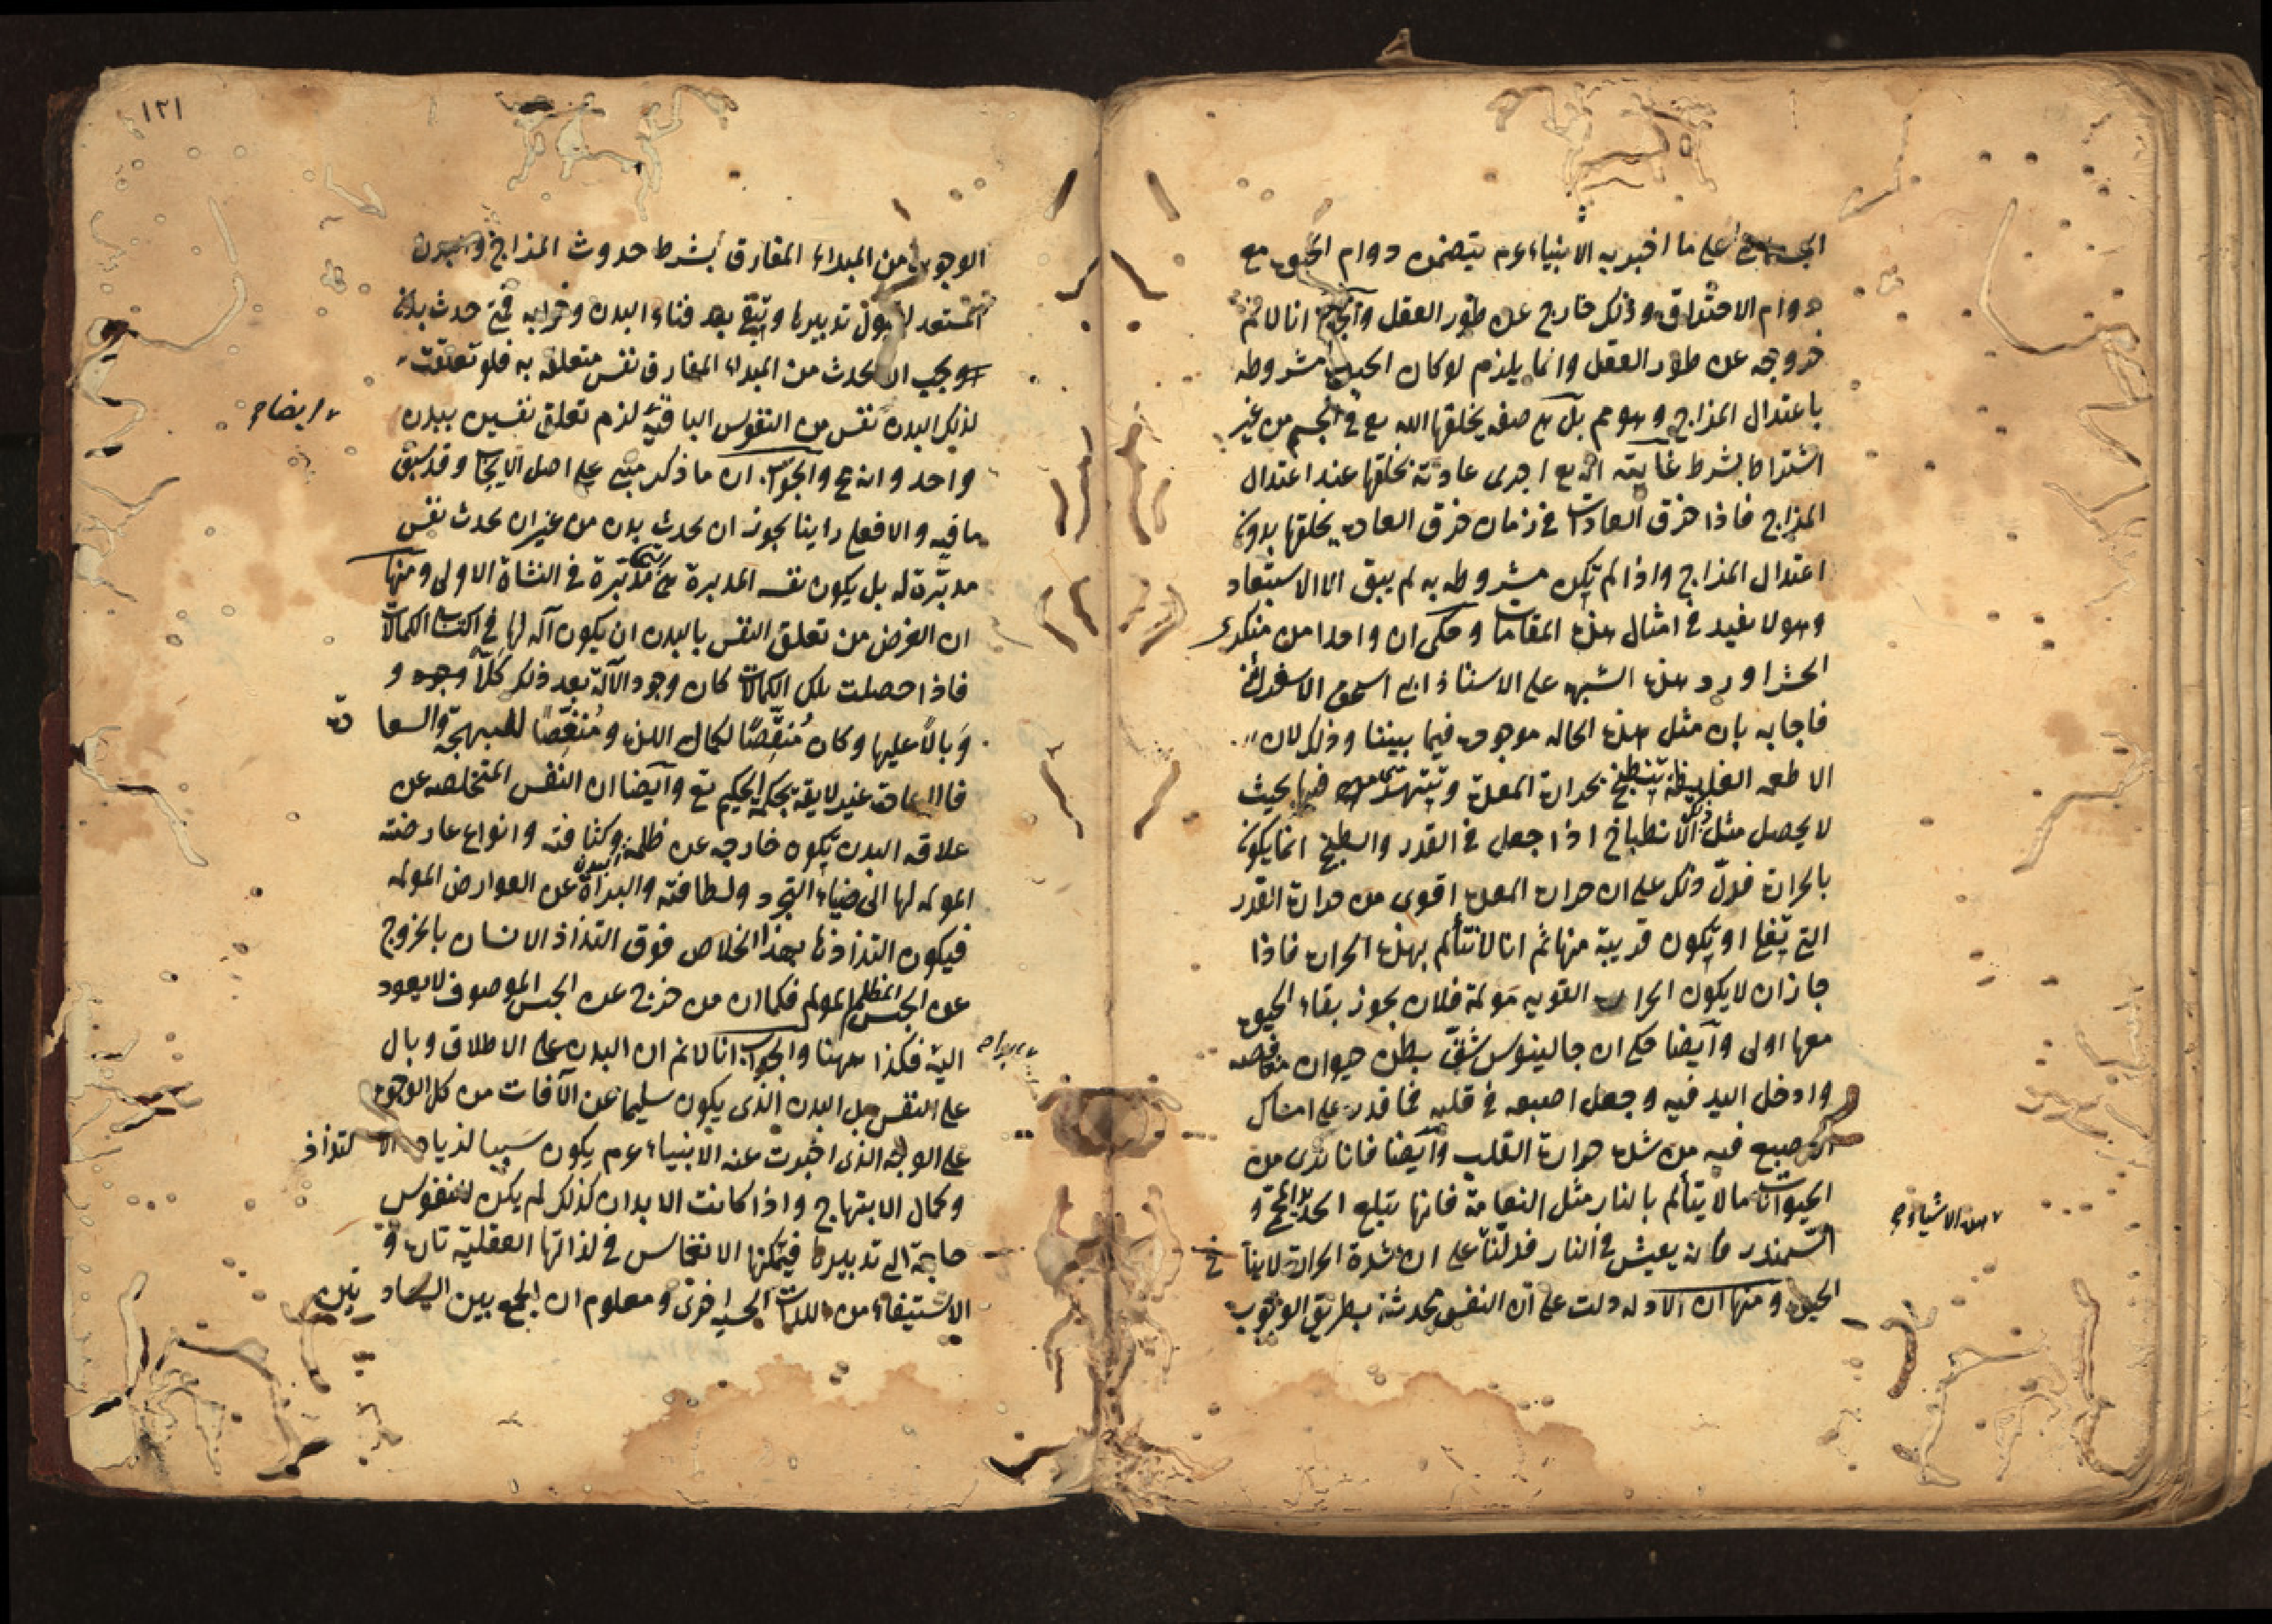 على ما اخبر به الانبياء عم يتضمن دوام الحيوة مع
دوام الاحتراق وذلك خارج عن طور العقل وآلجوا انا لانم
خروجه عن طور العقل وانما يلزم لو كان الحيوة مشروطه
باعتدال المزاج وهو مم بل هى صفه يخلقها الله تع فى الجسم من غير
اشتراط بشرط غايته انه تع اجرى عادته بخلقها عند اعتدال
المزاج فاذا خرق العادات فى زمان خرق العادة يخلقها بدون
اعتدال المزاج واذا لم تكن مشروطه به لم يبق الا الاستبعاد
وهو لا يفيد فى امثال هذه المقامات وحكى ان واحدا من منكرى
الحشر اورد هذه الشبهه على الاستاذ ابى اسحق الاسفرائنى
فاجابه بان مثل هذه الحاله موجودة فيما بيننا وذلك لان
الاطعمه الغليظة تنطبخ بحرارة المعدة وتتهرى فيها بحيث
لا يحصل مثل ذلك الانطباخ اذا جعل فى القدر والطبخ انما يكون
بالحرارة فدلّ ذلك على ان حرارة المعدة اقوى من حرارة القدر
التى تغلى او تكون قريبة منها ثم انا لا نتألم بهذه الحرارة فاذا
جاز ان لا يكون الحرارة القويه مولمة فلان يجوز بقاء الحيوة
معها اولى وآيضا حكى ان جالينوس شقّ بطن حيوان
وادخل اليد فيه وجعل اصبعه فى قلبه فما قدر على امساك
الاصبع فيه من شدة حرارة القلب وآيضا فانا نرى من
الحيوانات ما لا يتألم بالنار مثل النعامة فانها تبلع الحديد المحمى و
السمندر فانه يعيش فى النار فدلّتنا على ان شدة الحرارة لا ينافى
هذه الاشياء صح
الحيوة ومنها ان الادله دلت على ان النفس محدثة بطريق الوجوب
١٢١
الوجوب من المبداء المفارق بشرط حدوث المزاج والبدن
المستعد لقبول تدبيرها وتبقى بعد فناء البدن وخرابه فمتى حدث بدن
وجب ان يحدث من المبداء المفارق نفس متعلقه به فلو تعلقت
ايضا صح
لذلك البدن نفس من النفوس الباقية لزم تعلق نفسين ببدن
واحد وانه مح والجواب ان ما ذكر مبنى على اصل الايجاب وقد سبق
ما فيه والا فعلى راينا يجوز ان يحدث بدن من غير ان يحدث نفس
مدبّرة له بل يكون نفسه المدبرة هى مدبّرة فى النشاة الاولى ومنها
ان الغرض من تعلق النفس بالبدن ان يكون آله لها فى اكتساب الكمالات
فاذا حصلت تلك الكمالات كان وجود الآلة بعد ذلك كَلّاً و
وَبالاً عليها وكان مُنقّصًا لكمال اللذة ومُنَغّصًا للبهجة والسعادة
فالاعادة غير لايقة بحكمة الحكيم تع وآيضا ان النفس المتخلصه عن
علاقه البدن تكون خارجه عن ظلمة البدن وكثافته وانواع عارضته
المولمه لها الى ضياء التجرد ولطافته والبراءة عن العوارض المولمه
فيكون التذاذها بهذا الخلاص فوق التذاذ الانسان بالخروج
عن الحبس المظلم المولم فكما ان من خرج عن الحبس الموصوف لا يعود
اليه فكذا ههنا والجواب انا لانم ان البدن على الاطلاق وبال
على النفس بل البدن الذى يكون سليما عن الآفات من كل الوجوه
على الوجه الذى اخبرت عنه الانبياء عم يكون سببا لزيادة الالتذاذ
وكمال الابتهاج واذا كانت الابدان كذلك لم يكن للنفوس
حاجة الى تدبيرها فيمكنها الانغماس فى لذاتها العقليّة تارة و
الاستيفاء من اللذات الحسيه اخرى ومعلوم ان الجمع بين السعادتين